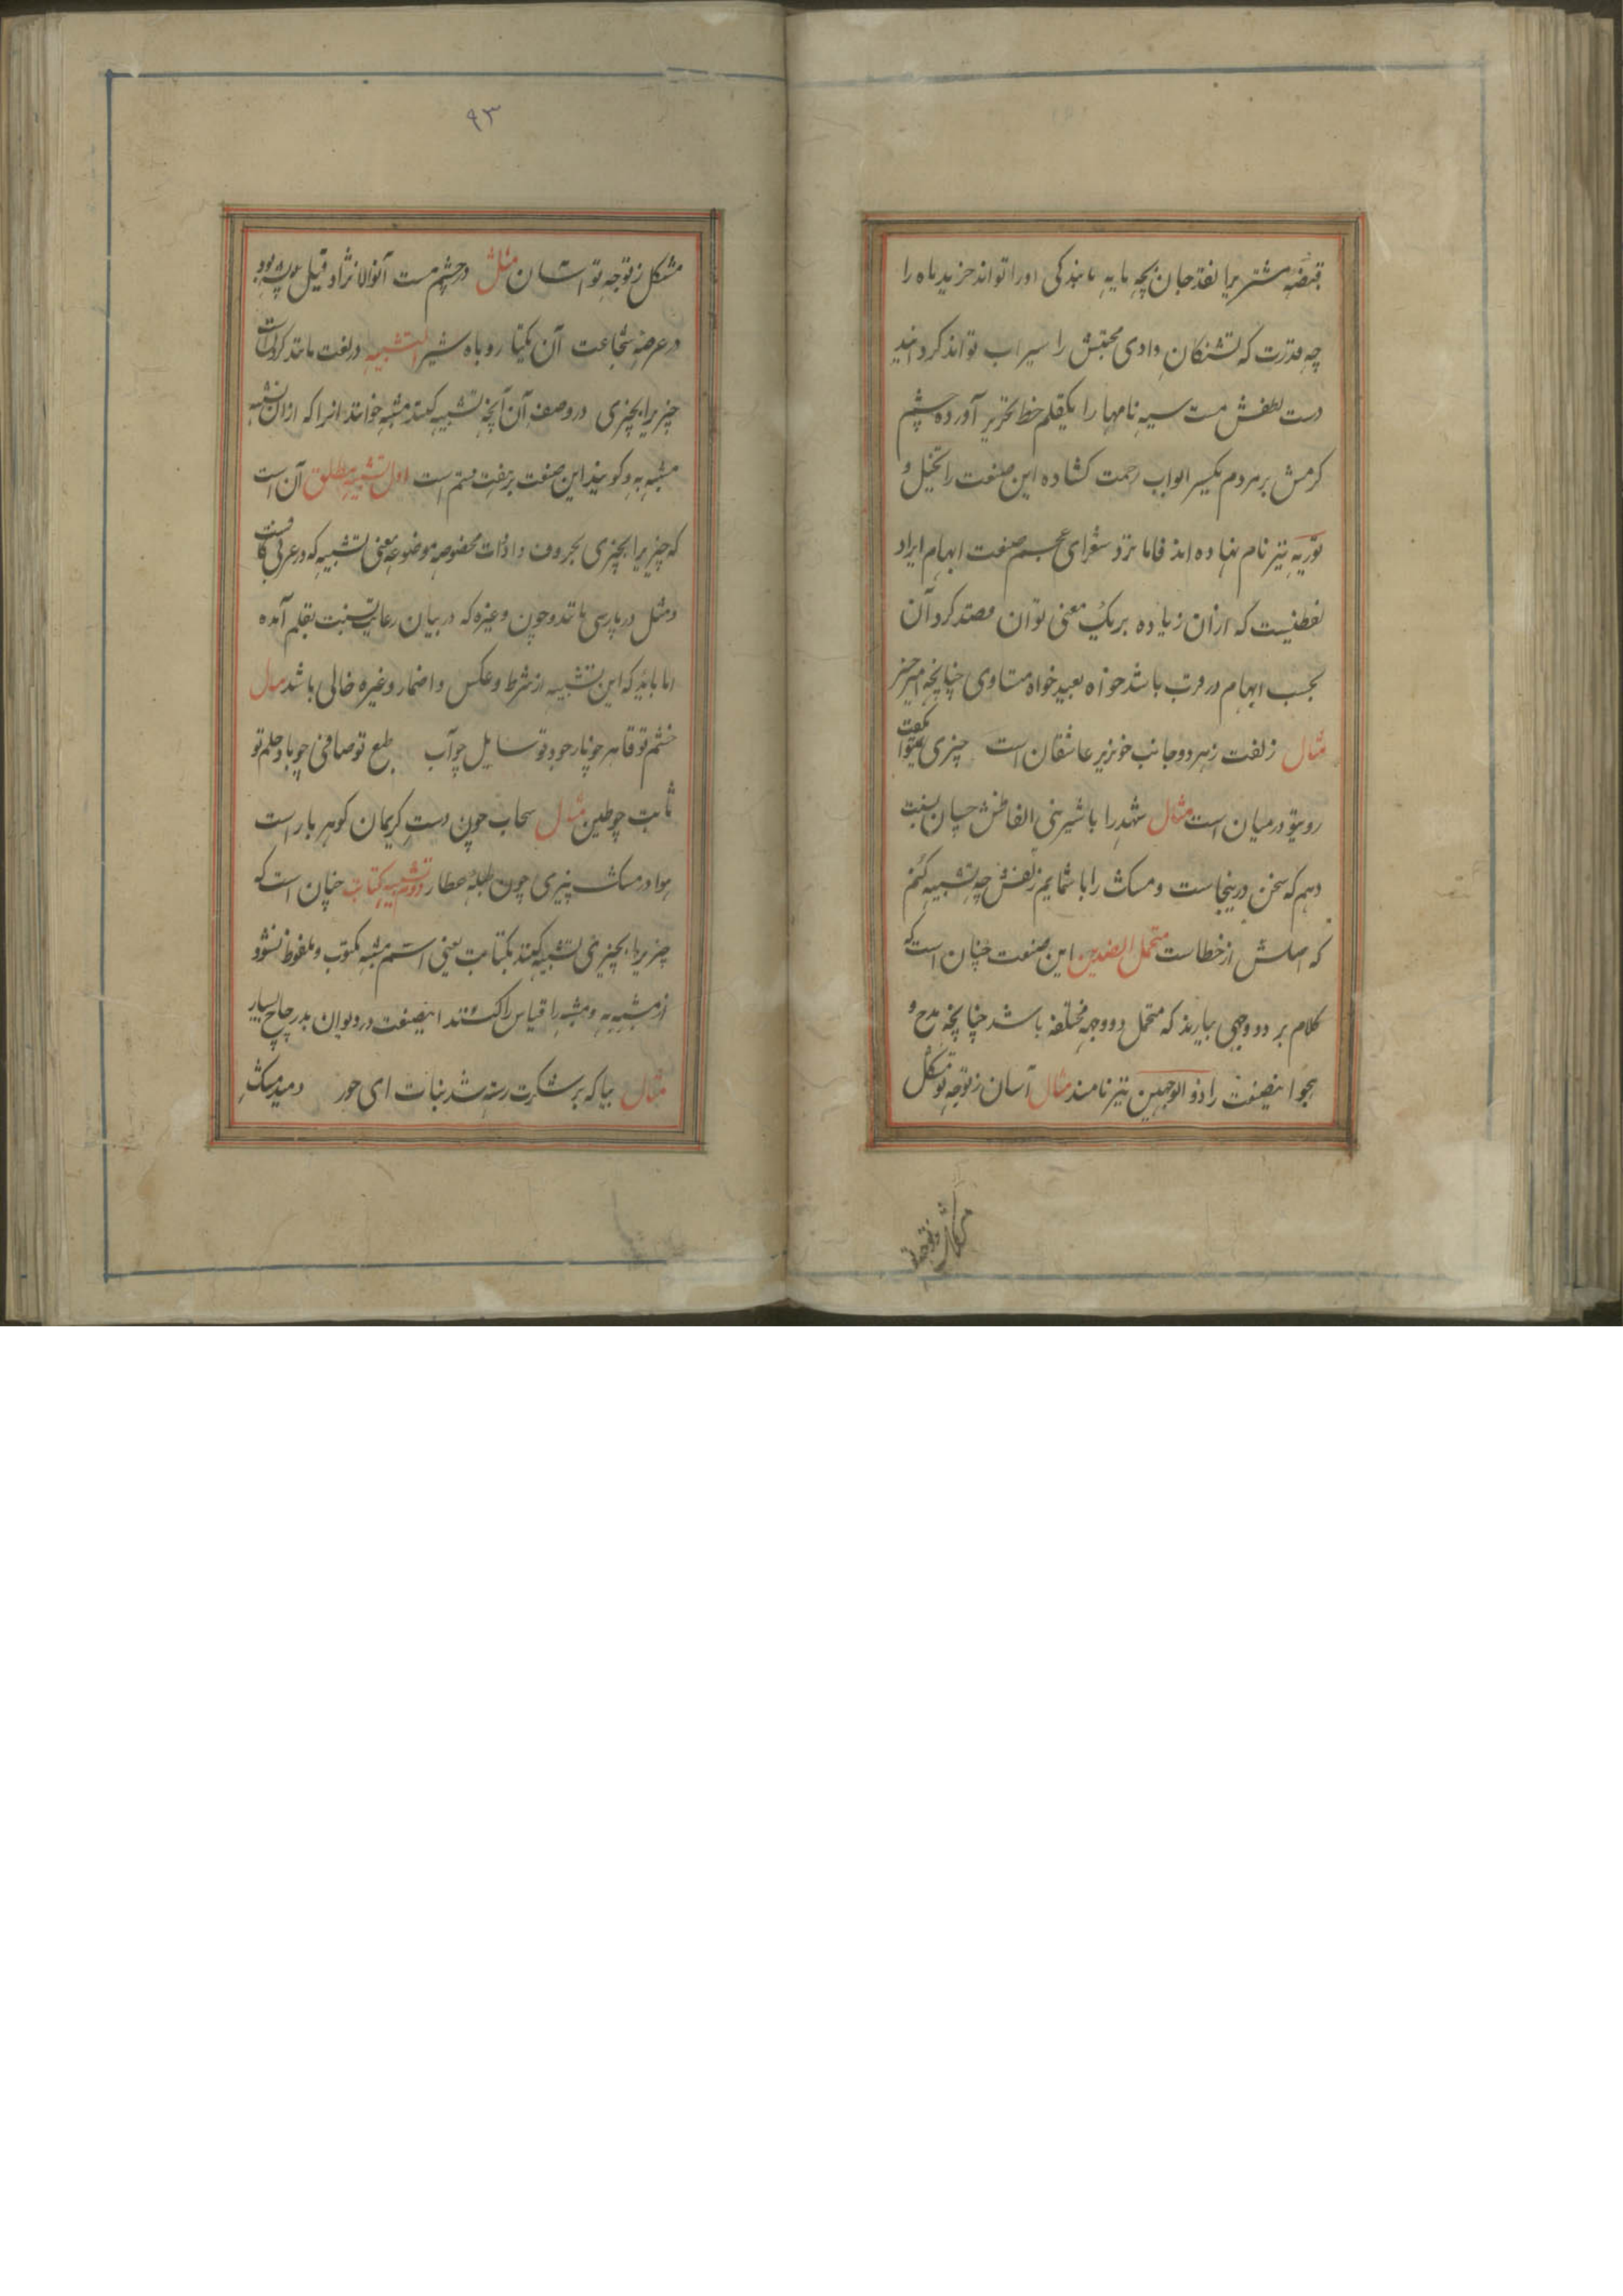 قبضهٔ مشتریرا نقد جان بچه مایه مابندگی اورا تواند خرید ماه را
چه قدرت که تشنکان وادی محبتش را سیراب تواند کردانید
دست لطفش مت سیه نامها را بیکقلم خط تحریر آورده چشم
کرمش بر مردم یکسر ابواب رحمت کشاده این صنعت را تخییل و
توریه نیز نام نهاده اند فاما نزد شعرای عجم صنعت ایهام ایراد
لفظیست که ازان زیاده بر یک معنی توان قصد کرد آن
بحسب ایهام در قرب باشد خواه بعید خواه متساوی چنانچه امیر
مثال زلفت ز هر دو جانب خونریز عاشقان است چیزی نمیتوان گفت
روی تو در میان است مثال شهد را با شیرینی الفاظش چسان نسبت
دهم که سخن درینجاست و مسک را با شمایم زلفش چه تشبیه کنم
که اصلش از خطاست متحمل الضدین این صنعت چنان است که
کلام بر دو وجهی بیارند که متحمل دو وجه مختلفه باشد چنانچه مدح و
هجو اینصنعت را ذو الوجهین نیز نامند مثال آسان ز توجه تو مشکل
مشکل ز توجه تو
۹۳
مشکل ز توجه تو آسان مثل در چشم مت آنوالا نژاد فیل پشه بود
در عرصهٔ شجاعت آن یکتا روباه شیر التشبیه در لغت مانند کردن است
چیزیرا بچیزی در وصف آن آنچه تشبیه کنند مشبه خوانند انرا که ازان تشبیه
مشبه به و کویند این صنعت بر هفت قسم است اول تشبیه مطلق آن است
که چیزیرا بچیزی بحروف و ادات مخصوصه موضوعه معنی تشبیه که در عربی کاف است
و مثل در پارسی مانند و چون و غیره که در بیان رعایت نسبت بقلم آمده
اما باید که این تشبیه از شرط و عکس و اضمار و غیره خالی باشد مثال
خشم تو قاهر چو نار جود تو سایل چو آب طبع تو صافی چو باد حلم تو
ثابت چو طین مثال سحاب چون دست کریمان کوهر بار است
هوا در مسک بیزی چون طبلهٔ عطار دوم تشبیه کنایت چنان است که
چیزیرا بچیزی تشبیه کنند بکنایت یعنی اسم مشبه مکتوب و ملفوظ نشود
از مشبه به و مشبه را قیاس کنند اینصنعت در دیوان بدر چاچ بسیار
مثال بیا که بر شکرت رسته شد نبات ای حور دمید مسک